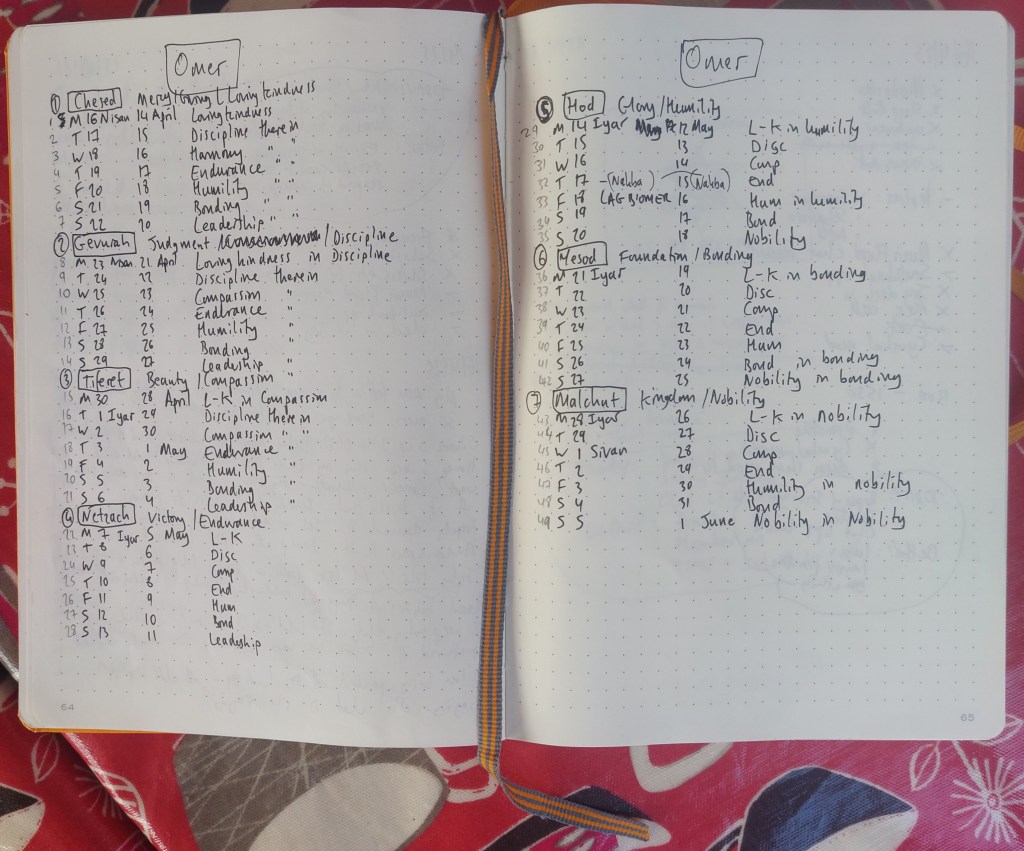 Omer
① Chesed Mercy/Giving/Lovingkindness
1 M 16 Nisan 14 April Lovingkindness
2 T 17 15 Discipline therein
3 W 18 16 Harmony " "
4 T 19 17 Endurance " "
5 F 20 18 Humility " "
6 S 21 19 Bonding " "
7 S 22 20 Leadership " "
② Gevurah Judgment /Discipline
8 M 23 Nisan 21 April Lovingkindness in Discipline
9 T 24 22 Discipline therein
10 W 25 23 Compassion "
11 T 26 24 Endurance "
12 F 27 25 Humility "
13 S 28 26 Bonding "
14 S 29 27 Leadership "
③ Tiferet Beauty/Compassion
15 M 30 28 April L-K in Compassion
16 T 1 Iyar 29 Discipline therein
17 W 2 30 Compassion " "
18 T 3 1 May Endurance "
19 F 4 2 Humility "
20 S 5 3 Bonding "
21 S 6 4 Leadership "
④ Netzach Victory/Endurance
22 M 7 Iyar 5 May L-K
23 T 8 6 Disc
24 W 9 7 Comp
25 T 10 8 End
26 F 11 9 Hum
27 S 12 10 Bond
28 S 13 11 Leadership
64
Omer
⑤ Hod Glory/Humility
29 M 14 Iyar 12 May L-K in humility
30 T 15 13 Disc
31 W 16 14 Comp
32 T 17 -(Nakba) 15 (Nakba) End
33 F 18 LAG B'OMER 16 Hum in humility
34 S 19 17 Bond
35 S 20 18 Nobility
⑥ Yesod Foundation/Bonding
36 M 21 Iyar 19 L-K in bonding
37 T 22 20 Disc
38 W 23 21 Comp
39 T 24 22 End
40 F 25 23 Hum
41 S 26 24 Bond in bonding
42 S 27 25 Nobility in bonding
⑦ Malchut Kingdom/Nobility
43 M 28 Iyar 26 L-K in nobility
44 T 29 27 Disc
45 W 1 Sivan 28 Comp
46 T 2 29 End
47 F 3 30 Humility in nobility
48 S 4 31 Bond
49 S 5 1 June Nobility in Nobility
65